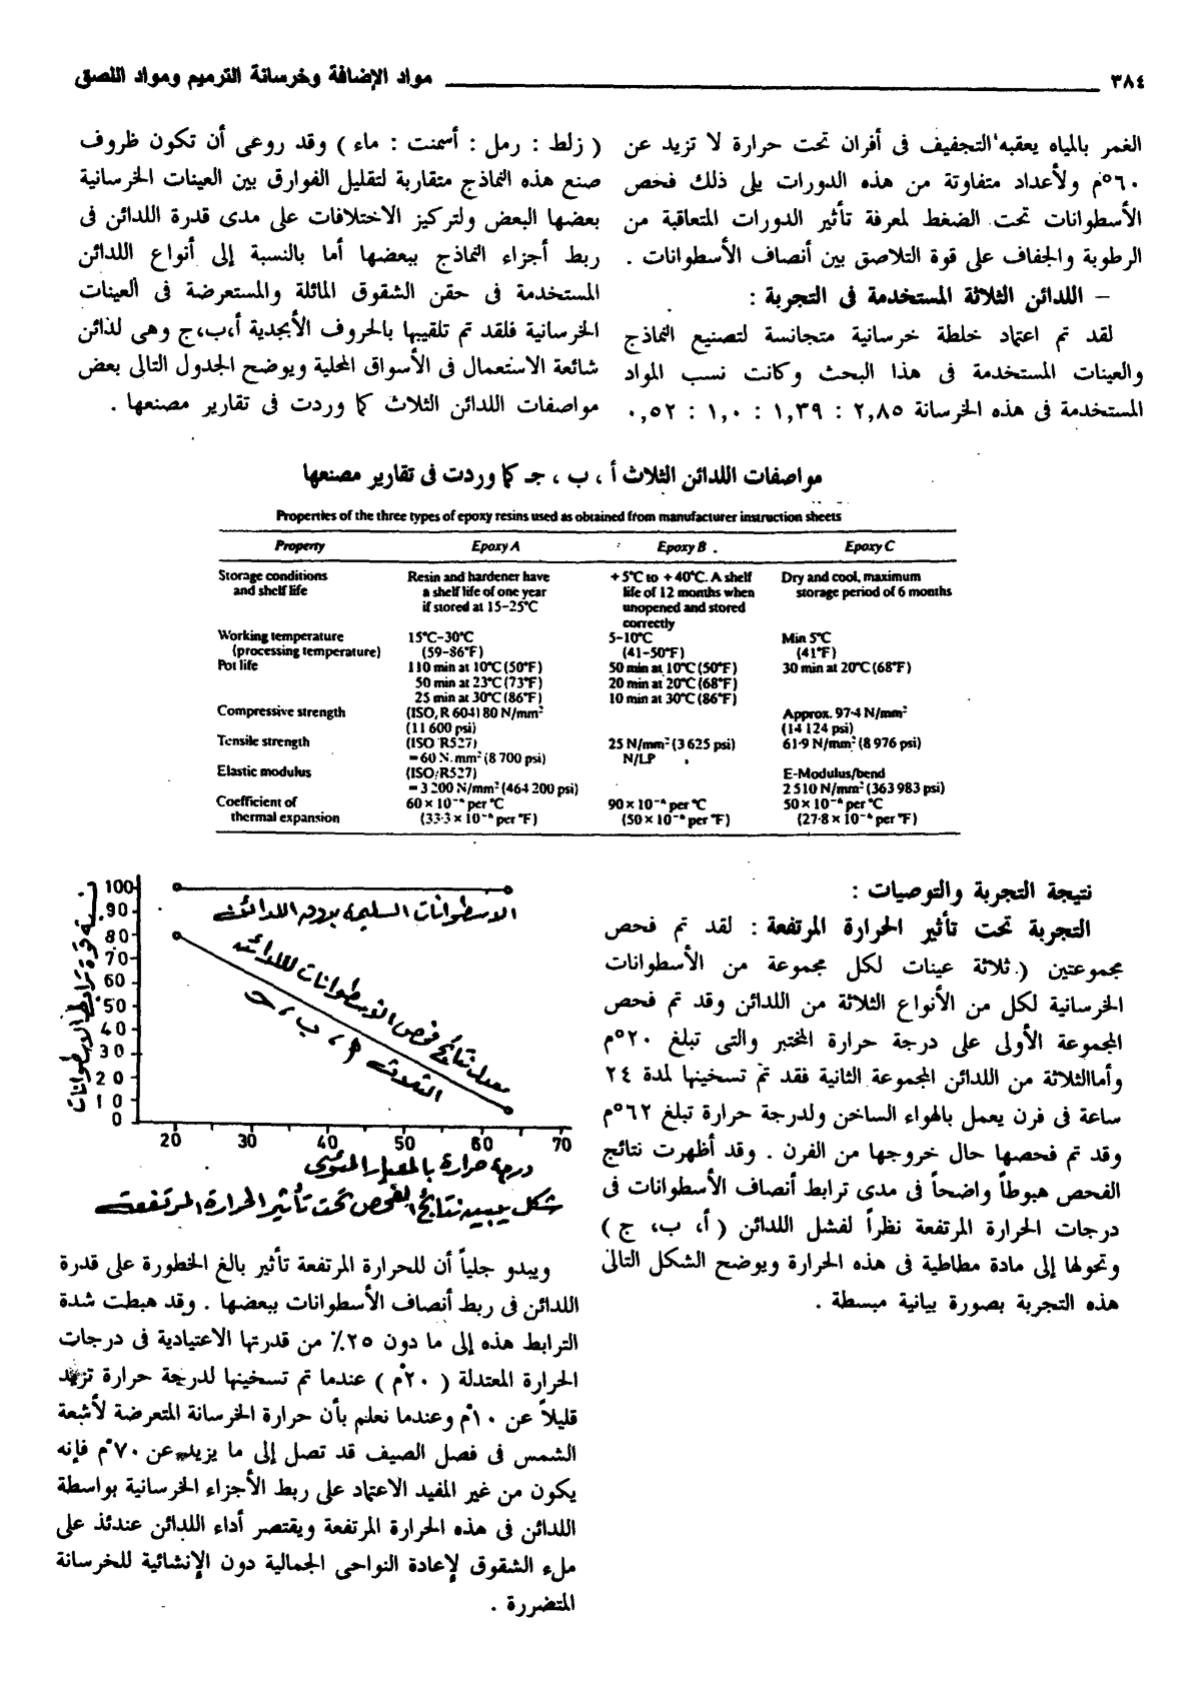 ٣٨٤ مواد الإضافة وخرسانة الترميم ومواد اللصق
الغمر بالمياه يعقبه التجفيف فى أفران تحت حرارة لا تزيد عن
٦٠°م ولأعداد متفاوتة من هذه الدورات يلى ذلك فحص
الأسطوانات تحت الضغط لمعرفة تأثير الدورات المتعاقبة من
الرطوبة والجفاف على قوة التلاصق بين أنصاف الأسطوانات .
– اللدائن الثلاثة المستخدمة فى التجربة :
لقد تم اعتماد خلطة خرسانية متجانسة لتصنيع النماذج
والعينات المستخدمة فى هذا البحث وكانت نسب المواد
المستخدمة فى هذه الخرسانة ٢,٨٥ : ١,٣٩ : ١,٠ : ٠,٥٢
( زلط : رمل : أسمنت : ماء ) وقد روعى أن تكون ظروف
صنع هذه النماذج متقاربة لتقليل الفوارق بين العينات الخرسانية
بعضها البعض ولتركيز الاختلافات على مدى قدرة اللدائن فى
ربط أجزاء النماذج ببعضها أما بالنسبة إلى أنواع اللدائن
المستخدمة فى حقن الشقوق المائلة والمستعرضة فى العينات
الخرسانية فلقد تم تلقيبها بالحروف الأبجدية أ،ب،ج وهى لدائن
شائعة الاستعمال فى الأسواق المحلية ويوضح الجدول التالى بعض
مواصفات اللدائن الثلاث كما وردت فى تقارير مصنعها .
مواصفات اللدائن الثلاث أ ، ب ، جـ كما وردت فى تقارير مصنعها
Properties of the three types of epoxy resins used as obtained from manufacturer instruction sheets
Property Epoxy A Epoxy B Epoxy C
Storage conditions Resin and hardener have +5°C to +40°C. A shelf Dry and cool, maximum
and shelf life a shelf life of one year life of 12 months when storage period of 6 months
if stored at 15–25°C unopened and stored
correctly
Working temperature 15°C–30°C 5–10°C Min 5°C
(processing temperature) (59–86°F) (41–50°F) (41°F)
Pot life 110 min at 10°C (50°F) 50 min at 10°C (50°F) 30 min at 20°C (68°F)
50 min at 23°C (73°F) 20 min at 20°C (68°F)
25 min at 30°C (86°F) 10 min at 30°C (86°F)
Compressive strength (ISO, R 604) 80 N/mm² Approx. 97·4 N/mm²
(11 600 psi) (14 124 psi)
Tensile strength (ISO R527) 25 N/mm² (3 625 psi) 61·9 N/mm² (8 976 psi)
=60 N.mm² (8 700 psi) N/LP
Elastic modulus (ISO/R527) E-Modulus/bend
=3 200 N/mm² (464 200 psi) 2 510 N/mm² (363 983 psi)
Coefficient of 60 × 10⁻⁶ per °C 90 × 10⁻⁶ per °C 50 × 10⁻⁶ per °C
thermal expansion (33·3 × 10⁻⁶ per °F) (50 × 10⁻⁶ per °F) (27·8 × 10⁻⁶ per °F)
نتيجة التجربة والتوصيات :
التجربة تحت تأثير الحرارة المرتفعة : لقد تم فحص
مجموعتين ( ثلاثة عينات لكل مجموعة من الأسطوانات
الخرسانية لكل من الأنواع الثلاثة من اللدائن وقد تم فحص
المجموعة الأولى على درجة حرارة المختبر والتى تبلغ ٢٠°م
وأماالثلاثة من اللدائن المجموعة الثانية فقد تم تسخينها لمدة ٢٤
ساعة فى فرن يعمل بالهواء الساخن ولدرجة حرارة تبلغ ٦٢°م
وقد تم فحصها حال خروجها من الفرن . وقد أظهرت نتائج
الفحص هبوطاً واضحاً فى مدى ترابط أنصاف الأسطوانات فى
درجات الحرارة المرتفعة نظراً لفشل اللدائن ( أ، ب، ج )
وتحولها إلى مادة مطاطية فى هذه الحرارة ويوضح الشكل التالى
هذه التجربة بصورة بيانية مبسطة .
نسبة قوة ترابط الاسطوانات
100
90
80
70
60
50
40
30
20
10
0
الاسطوانات السليمة بدون اللدائن
معدل نتائج فحص الاسطوانات للدائن
الثلاث أ ، ب ، جـ
20 30 40 50 60 70
درجة حرارة بالمعيار المئوى
شكل يبين نتائج الفحص تحت تأثير الحرارة المرتفعة
ويبدو جلياً أن للحرارة المرتفعة تأثير بالغ الخطورة على قدرة
اللدائن فى ربط أنصاف الأسطوانات ببعضها . وقد هبطت شدة
الترابط هذه إلى ما دون ٢٥٪ من قدرتها الاعتيادية فى درجات
الحرارة المعتدلة ( ٢٠°م ) عندما تم تسخينها لدرجة حرارة تزيد
قليلاً عن ١٠°م وعندما نعلم بأن حرارة الخرسانة المتعرضة لأشعة
الشمس فى فصل الصيف قد تصل إلى ما يزيد عن ٧٠°م فإنه
يكون من غير المفيد الاعتماد على ربط الأجزاء الخرسانية بواسطة
اللدائن فى هذه الحرارة المرتفعة ويقتصر أداء اللدائن عندئذ على
ملء الشقوق لإعادة النواحى الجمالية دون الإنشائية للخرسانة
المتضررة .